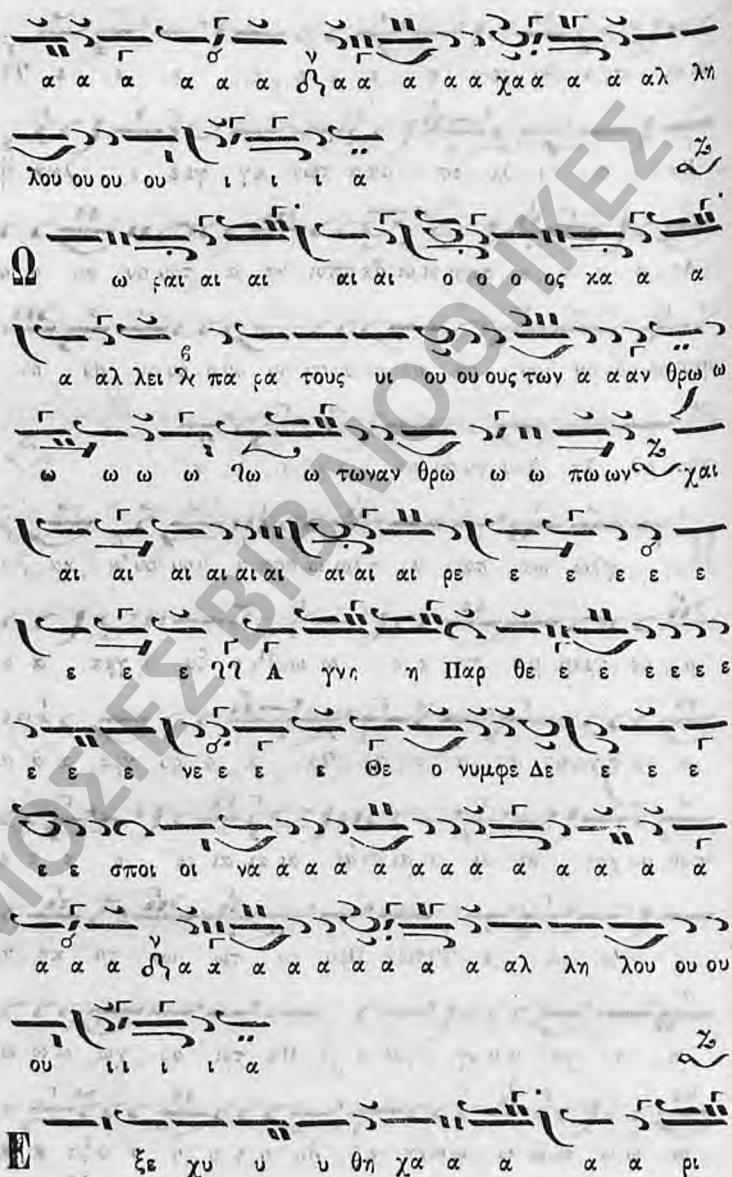 α α α α α α α α α α α χα α α α αλ λη
λου ου ου ου ι ι ι α
Ω ω ραι αι αι αι αι ο ο ο ος κα α α
α αλ λει πα ρα τους υι ου ου ους των α α αν θρω ω
ω ω ω ω ω ω των αν θρω ω ω πω ων χαι
αι αι αι αι αι αι αι αι αι ρε ε ε ε ε ε
ε ε ε Α γνη η Παρ θε ε ε ε ε ε ε
ε ε ε νε ε ε ε Θε ο νυμφε Δε ε ε ε
ε ε σποι οι να α α α α α α α α α α α α
α α α α χ α α α α α α α α αλ λη λου ου ου
ου ι ι ι ι α
Ε ξε χυ υ υ θη χα α α α α ρι
ΜΟΣΙΕΣ ΒΙΒΛΙΟΘΗΚΕΣ